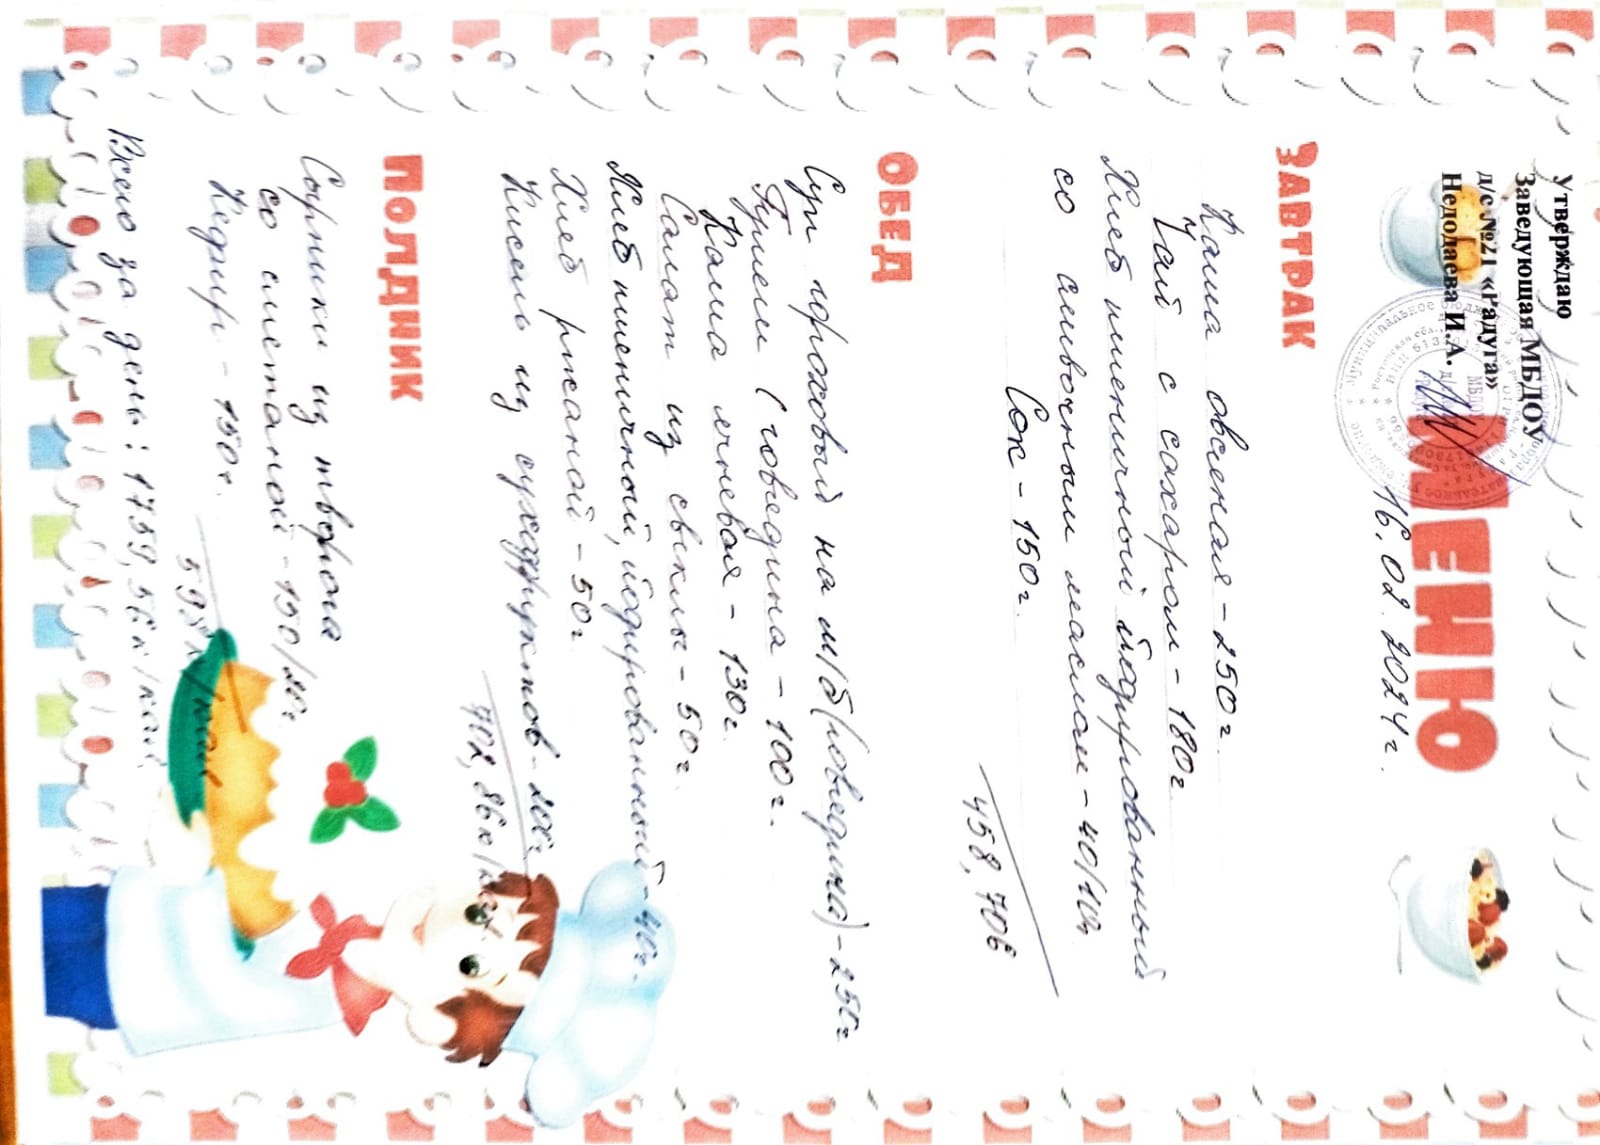 Утверждаю
Заведующая МБДОУ
д/с №21 «Радуга»
Недодаева И.А.
МЕНЮ
16.02.2024г.
ЗАВТРАК
Каша овсеная-250г.
Чай с сахаром-180г.
Хлеб пшеничный йодированный
со сливочным маслом-40/10г.
Сок-150г.
458,706
ОБЕД
Суп гороховый на м/б(говедина)-250г
Гуляш (говедина-100г.
Каша ячневая-130г.
Салат из свеклы-50г.
Хлеб пшеничный, йодированный-40г.
Хлеб ржаной-50г.
Кисель из сухофруктов-200г
702,86к/кал
ПОЛДНИК
Сырники из творога
со сметаной-150/20г
Кефир-150г.
598к/кал
Всего за день: 1759,56к/кал